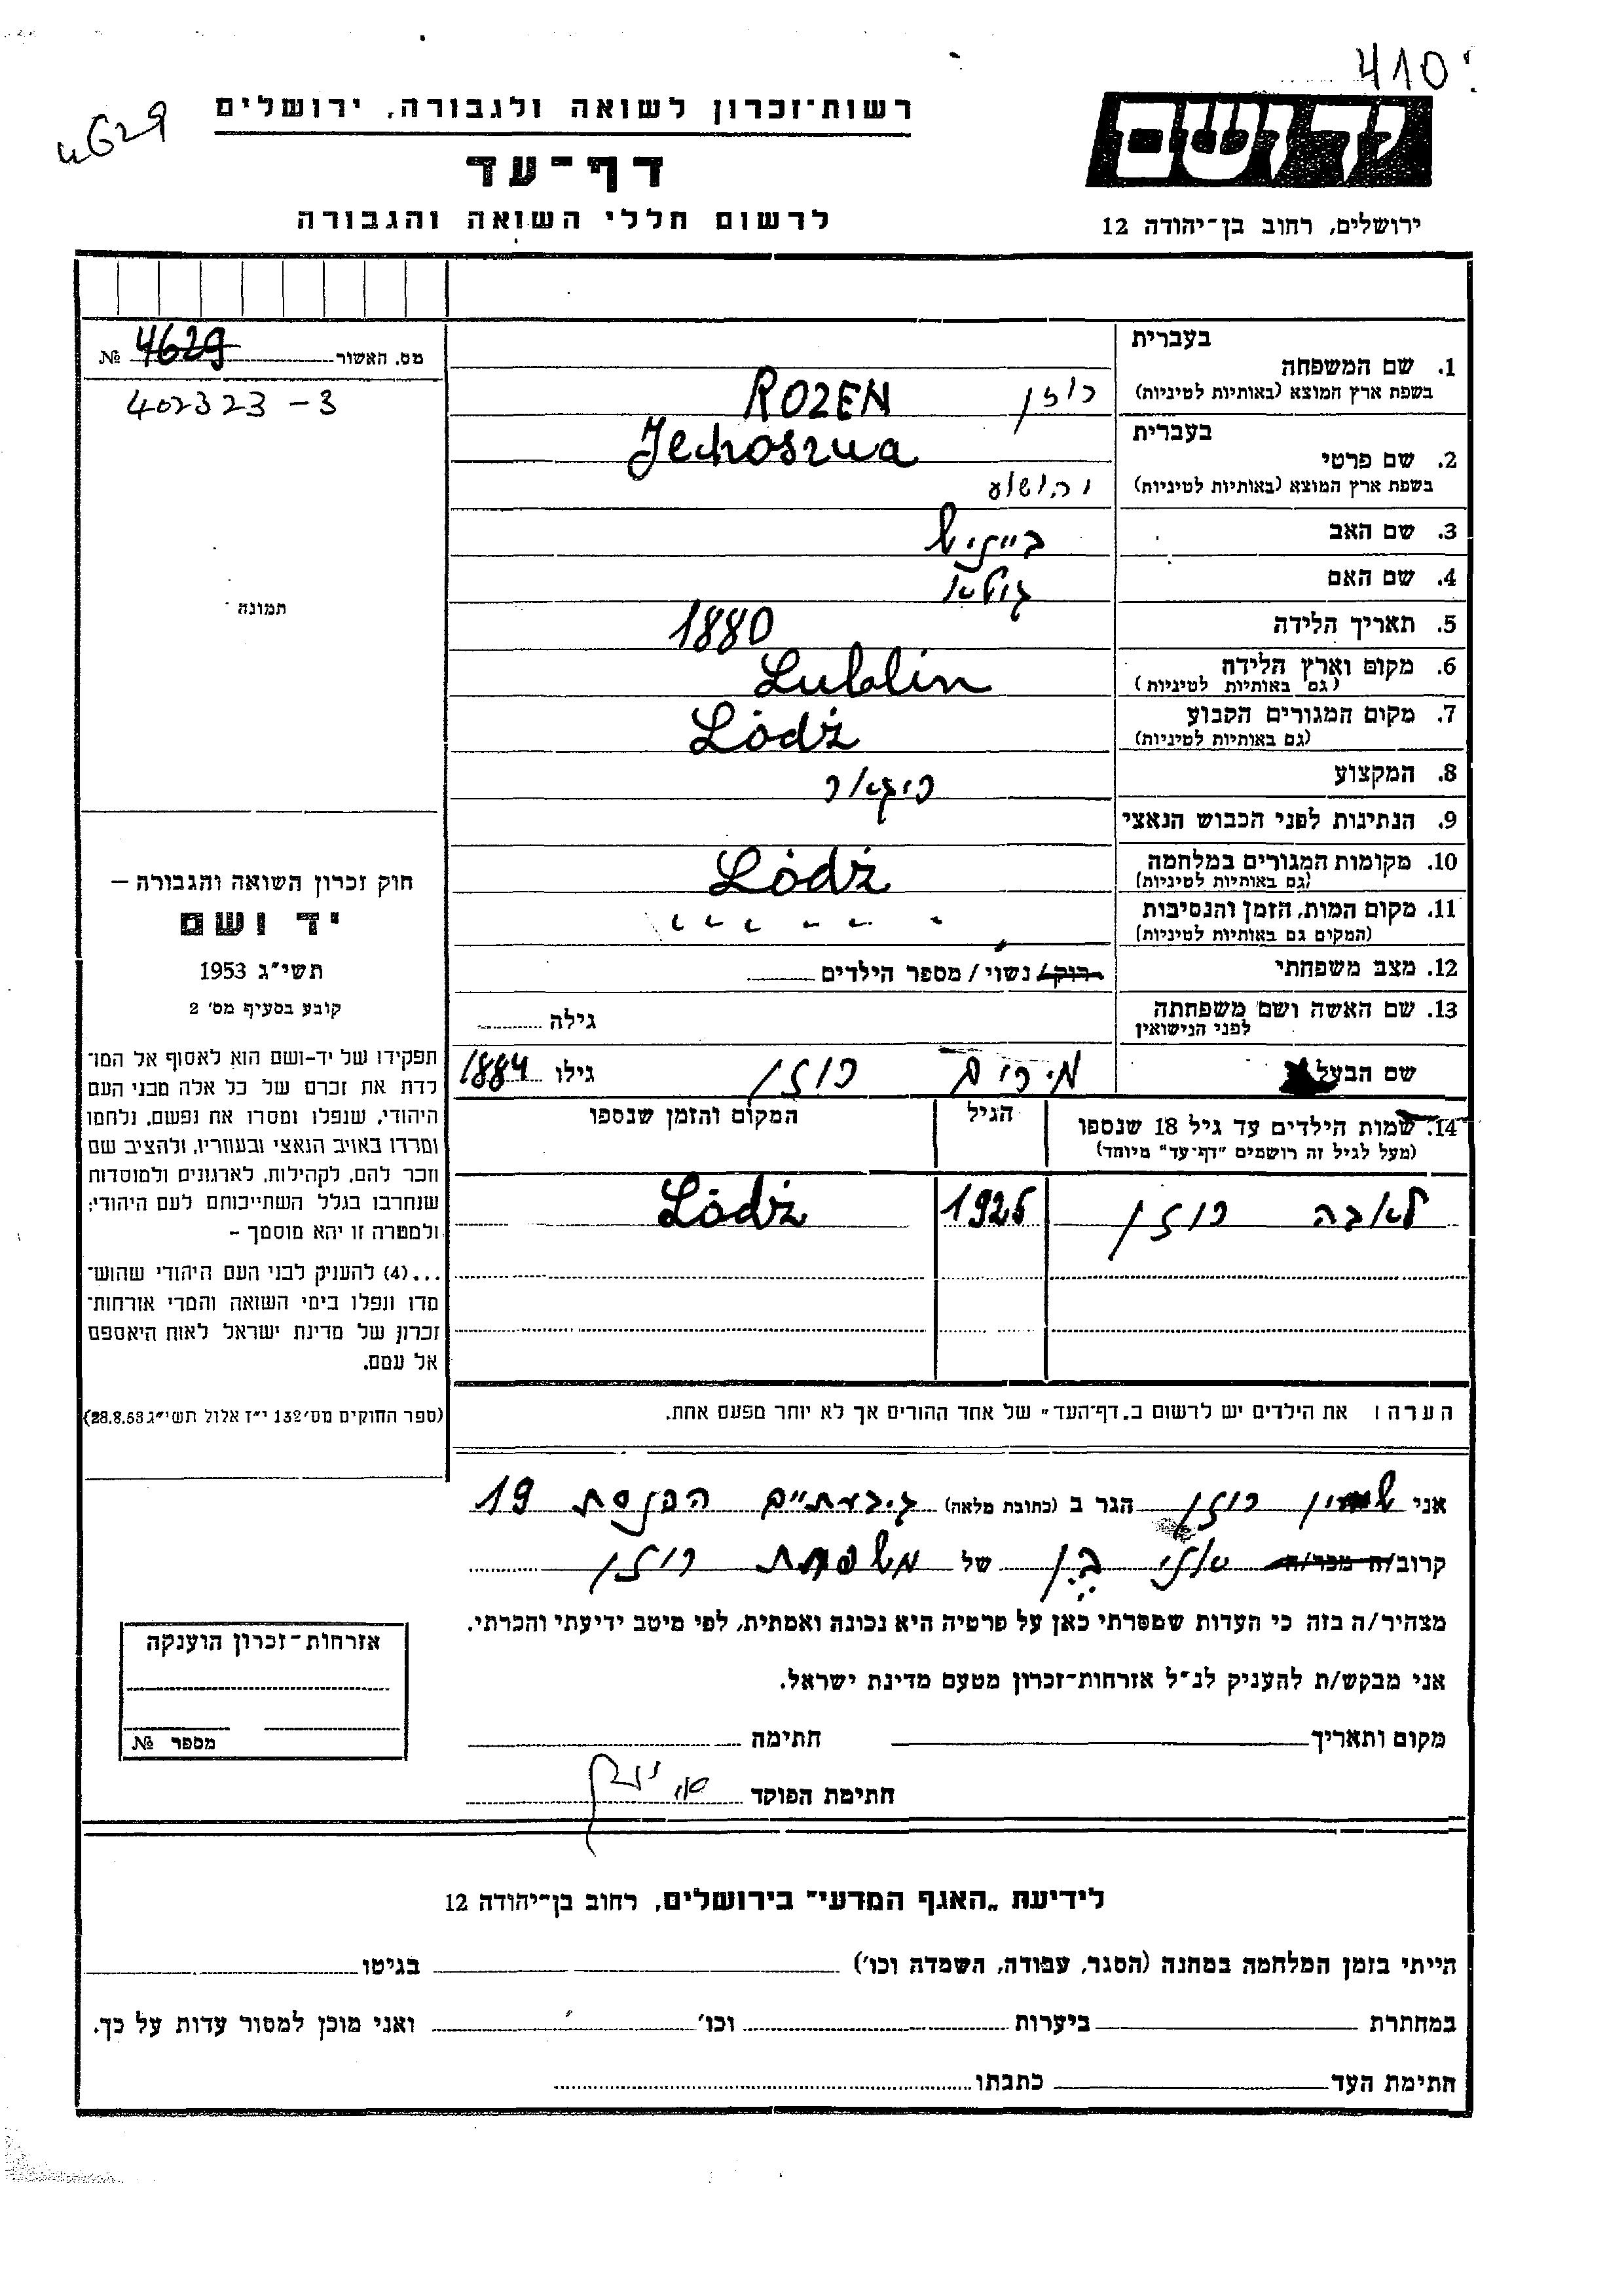 410
4629
רשות־זכרון לשואה ולגבורה, ירושלים
דף־עד
לרשום חללי השואה והגבורה
ידושם
ירושלים, רחוב בן־יהודה 12
מס. האשור 4629 №
402323-3
תמונה
בעברית
1. שם המשפחה
בשפת ארץ המוצא (באותיות לטיניות)
רוזן ROZEN
בעברית
2. שם פרטי
בשפת ארץ המוצא (באותיות לטיניות)
Jehoszua
יהושוע
3. שם האב
4. שם האם
5. תאריך הלידה 1880
6. מקום וארץ הלידה Lublin
(גם באותיות לטיניות)
7. מקום המגורים הקבוע Lódź
(גם באותיות לטיניות)
8. המקצוע
9. הנתינות לפני הכבוש הנאצי
10. מקומות המגורים במלחמה Lódź
(גם באותיות לטיניות)
11. מקום המות, הזמן והנסיבות
(המקום גם באותיות לטיניות)
12. מצב משפחתי רוק/ נשוי / מספר הילדים
13. שם האשה ושם משפחתה
לפני הנישואין
גילה
שם הבעל מירים רוזן גילו 1884
14. שמות הילדים עד גיל 18 שנספו
(מעל לגיל זה רושמים "דף־עד" מיוחד)
הגיל
המקום והזמן שנספו
רוזן 1925 Lódź
חוק זכרון השואה והגבורה –
יד ושם
תשי"ג 1953
קובע בסעיף מס' 2
תפקידו של יד-ושם הוא לאסוף אל המו־
לדת את זכרם של כל אלה מבני העם
היהודי, שנפלו ומסרו את נפשם, נלחמו
ומרדו באויב הנאצי ובעוזריו, ולהציב שם
וזכר להם, לקהילות, לארגונים ולמוסדות
שנחרבו בגלל השתייכותם לעם היהודי;
ולמטרה זו יהא מוסמך –
...(4) להעניק לבני העם היהודי שהוש־
מדו ונפלו בימי השואה והמרי אזרחות־
זכרון של מדינת ישראל לאות היאספם
אל עמם.
(ספר החוקים מס' 132 י"ז אלול תשי"ג 28.8.53)
הערה: את הילדים יש לרשום ב„דף־העד" של אחד ההורים אך לא יותר מפעם אחת.
אני רוזן הגר ב (כתובת מלאה) גיבעתיים הכנסת 19
קרוב/ה מכר/ה בן של משפחת רוזן
מצהיר/ה בזה כי העדות שמסרתי כאן על פרטיה היא נכונה ואמתית, לפי מיטב ידיעתי והכרתי.
אני מבקש/ת להעניק לנ"ל אזרחות־זכרון מטעם מדינת ישראל.
מקום ותאריך חתימה
חתימת הפוקד
אזרחות־זכרון הוענקה
מספר №
לידיעת „האגף המדעי" בירושלים, רחוב בן־יהודה 12
הייתי בזמן המלחמה במחנה (הסגר, עבודה, השמדה וכו') בגיטו
במחתרת ביערות וכו' ואני מוכן למסור עדות על כך.
חתימת העד כתבתו